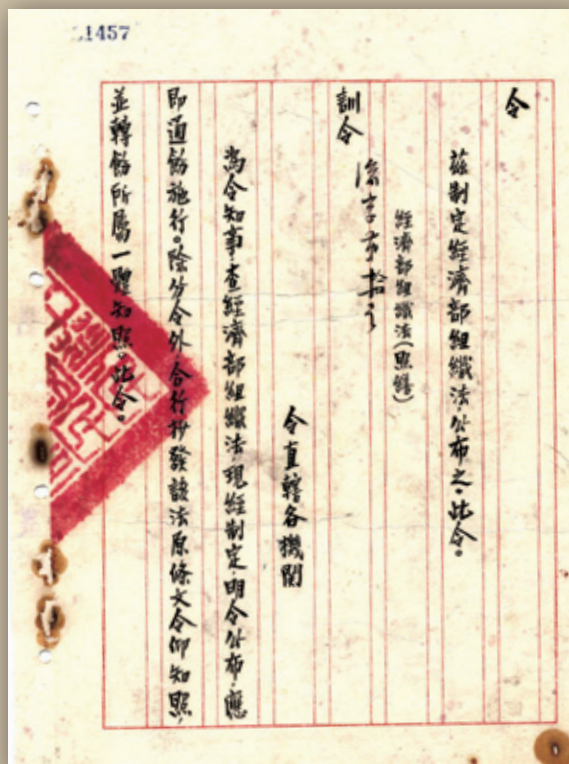 1457
令
茲制定經濟部組織法,公布之。此令。
經濟部組織法(照繕)
訓令
渝字第拾
令直轄各機關
為令知事查經濟部組織法,現經制定,明令公布,應
即通飭施行。除分令外,合行抄發該法原條文,令仰知照,
並轉飭所屬一體知照。此令。